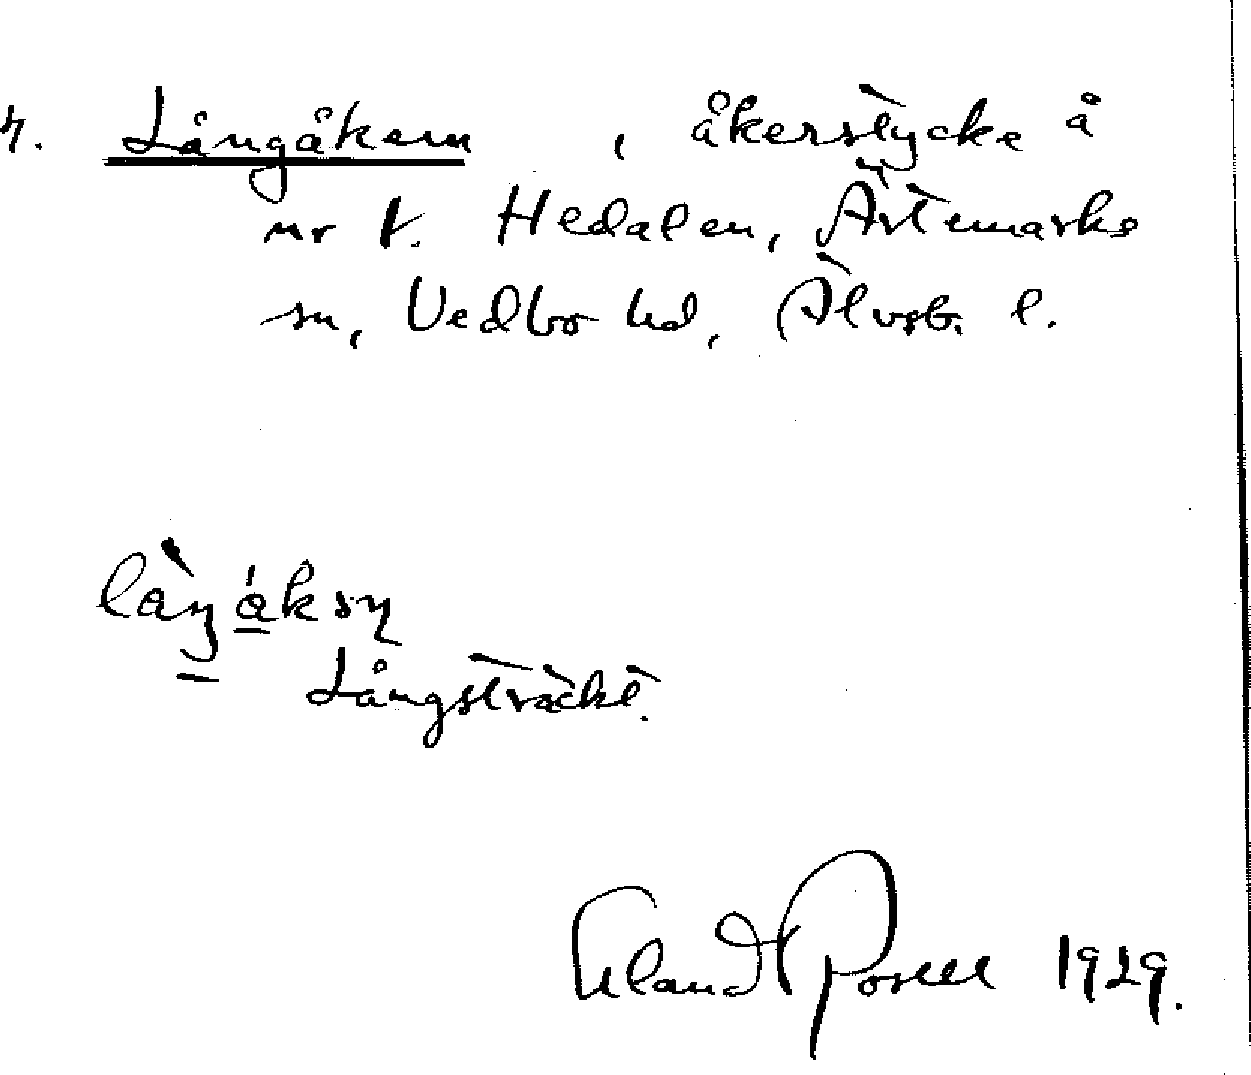 4. Långåkern, åkerstycke å
nr 1. Hedalen, Ärtemarks
sn, Vedbo hd, Älvsb. l.
Långsträckt.
Erland Rosell 1929.